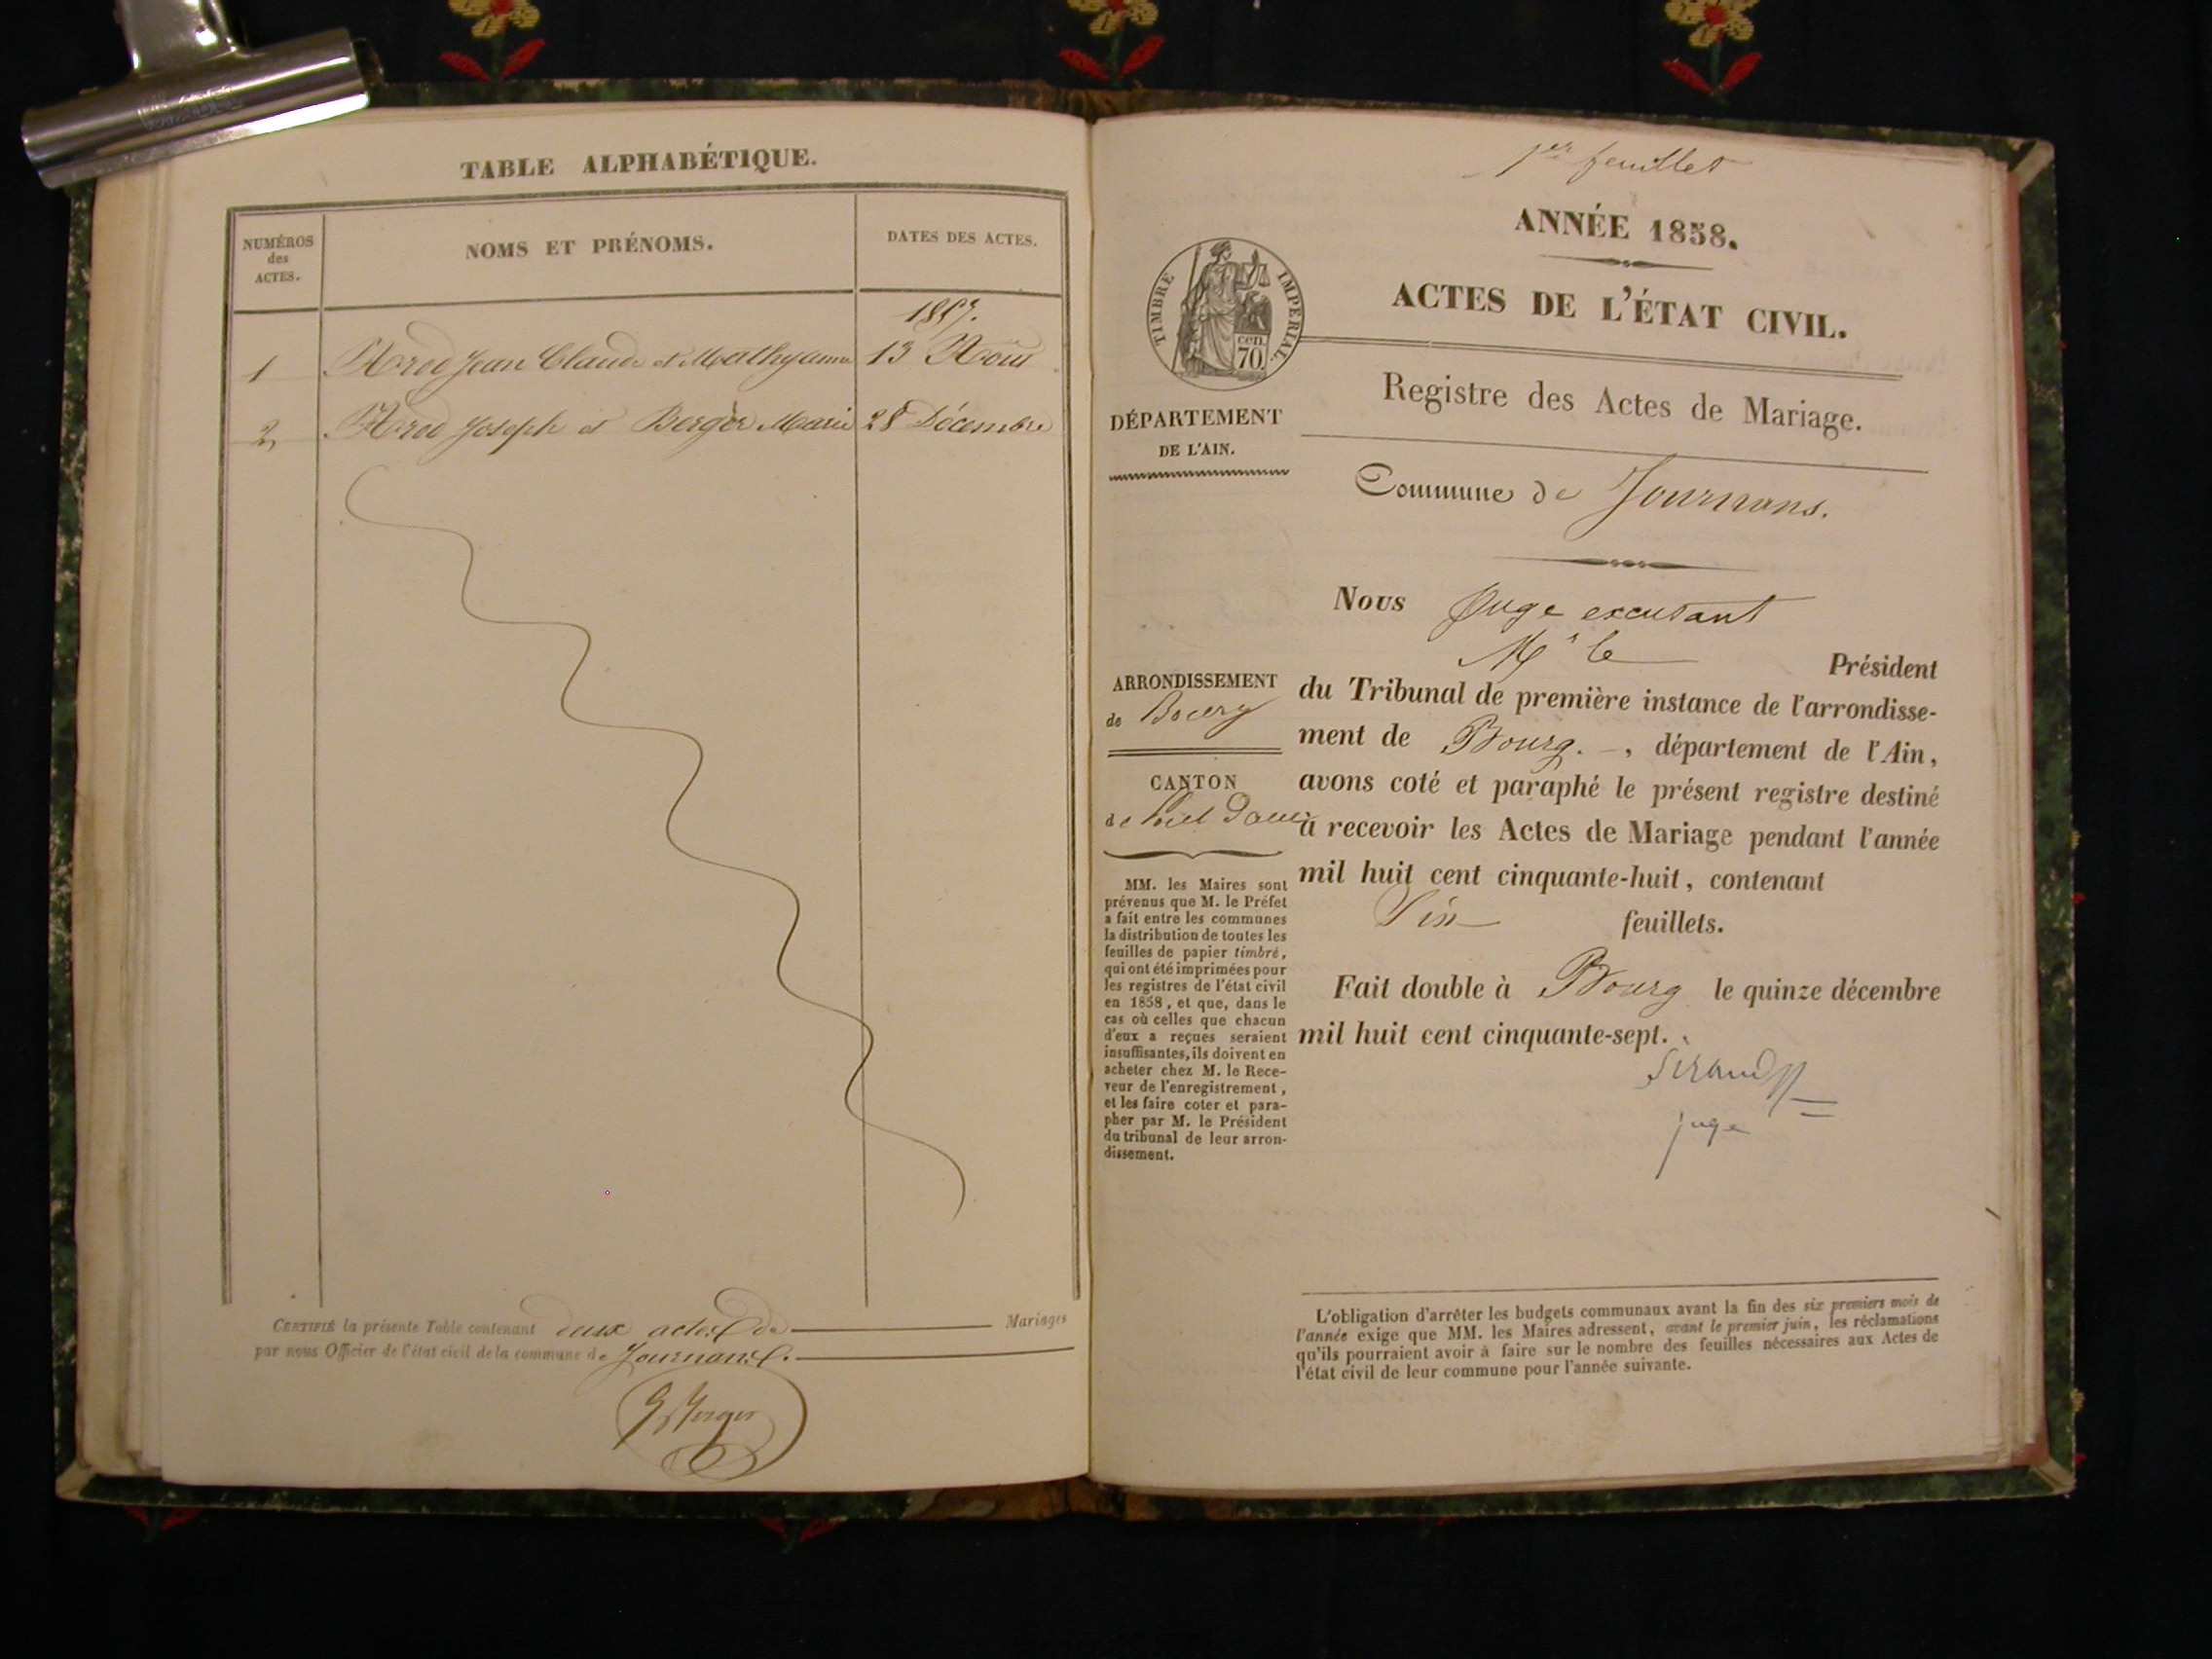 TABLE ALPHABÉTIQUE.
NUMÉROS
des
ACTES.
NOMS ET PRÉNOMS.
DATES DES ACTES.
1857.
1 Jean Claude et 13 Août
2 Joseph et Berger Marie 28 Décembre
CERTIFIÉ la présente Table contenant deux actes de Mariages
par nous Officier de l'état civil de la commune de Journans.
Berger
1er feuillet
ANNÉE 1858.
ACTES DE L'ÉTAT CIVIL.
TIMBRE IMPÉRIAL.
cen.
70.
DÉPARTEMENT
DE L'AIN.
Registre des Actes de Mariage.
Commune de Journans.
ARRONDISSEMENT
de Bourg
CANTON
de
MM. les Maires sont
prévenus que M. le Préfet
a fait entre les communes
la distribution de toutes les
feuilles de papier timbré,
qui ont été imprimées pour
les registres de l'état civil
en 1858, et que, dans le
cas où celles que chacun
d'eux a reçues seraient
insuffisantes, ils doivent en
acheter chez M. le Rece-
veur de l'enregistrement,
et les faire coter et para-
pher par M. le Président
du tribunal de leur arron-
dissement.
Nous Juge excusant
Mr le Président
du Tribunal de première instance de l'arrondisse-
ment de Bourg. , département de l'Ain,
avons coté et paraphé le présent registre destiné
à recevoir les Actes de Mariage pendant l'année
mil huit cent cinquante-huit, contenant
Six feuillets.
Fait double à Bourg le quinze décembre
mil huit cent cinquante-sept.
juge
L'obligation d'arrêter les budgets communaux avant la fin des six premiers mois de
l'année exige que MM. les Maires adressent, avant le premier juin, les réclamations
qu'ils pourraient avoir à faire sur le nombre des feuilles nécessaires aux Actes de
l'état civil de leur commune pour l'année suivante.